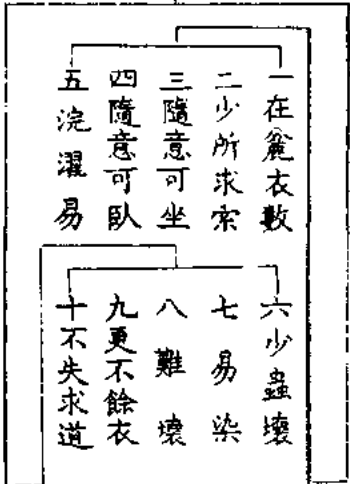 一在麁衣數
二少所求索
三隨意可坐
四隨意可臥
五浣濯易
六少蟲壞
七易染
八難壞
九更不餘衣
十不失求道